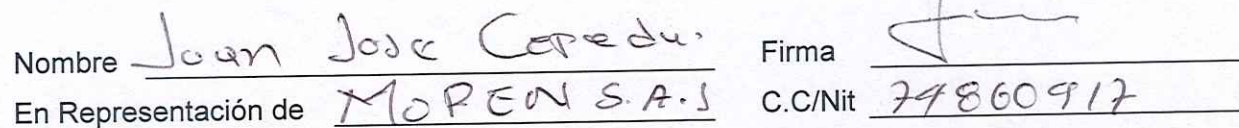 Nombre Juan Jose Cepeda. Firma
En Representación de MOPEN S.A.S C.C/Nit 79860917